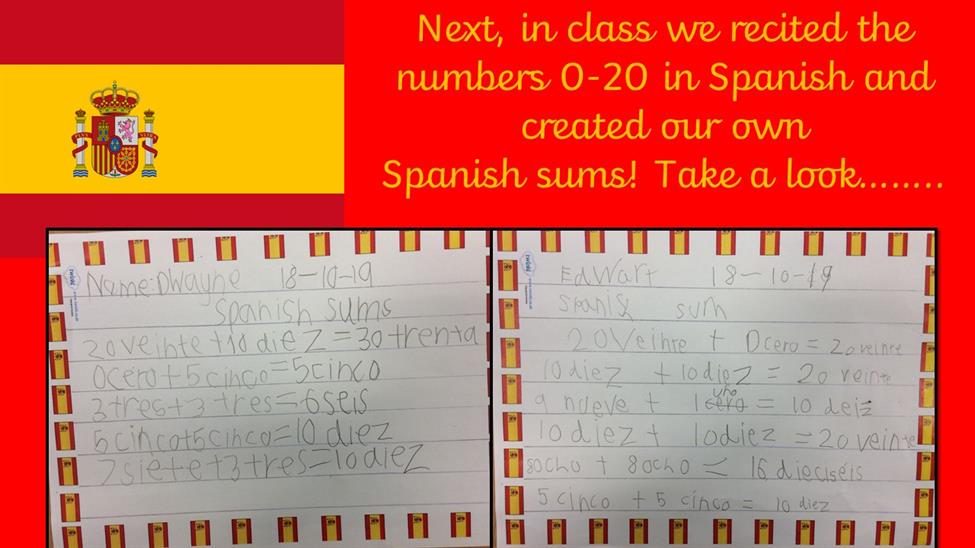 Next, in class we recited the
numbers 0-20 in Spanish and
created our own
Spanish sums! Take a look........
Name: Dwayne 18-10-19
Spanish sums
20 veinte + 10 diez = 30 trenta
0 cero + 5 cinco = 5 cinco
3 tres + 3 tres = 6 seis
5 cinco + 5 cinco = 10 diez
7 siete + 3 tres = 10 diez
Edwart 18-10-19
Spanig sum
20 veinte + 0 cero = 20 veinte
10 diez + 10 diez = 20 veinte
uno
9 nueve + 1 cero = 10 deiz
10 diez + 10 diez = 20 veinte
8 ocho + 8 ocho = 16 dieciseis
5 cinco + 5 cinco = 10 diez